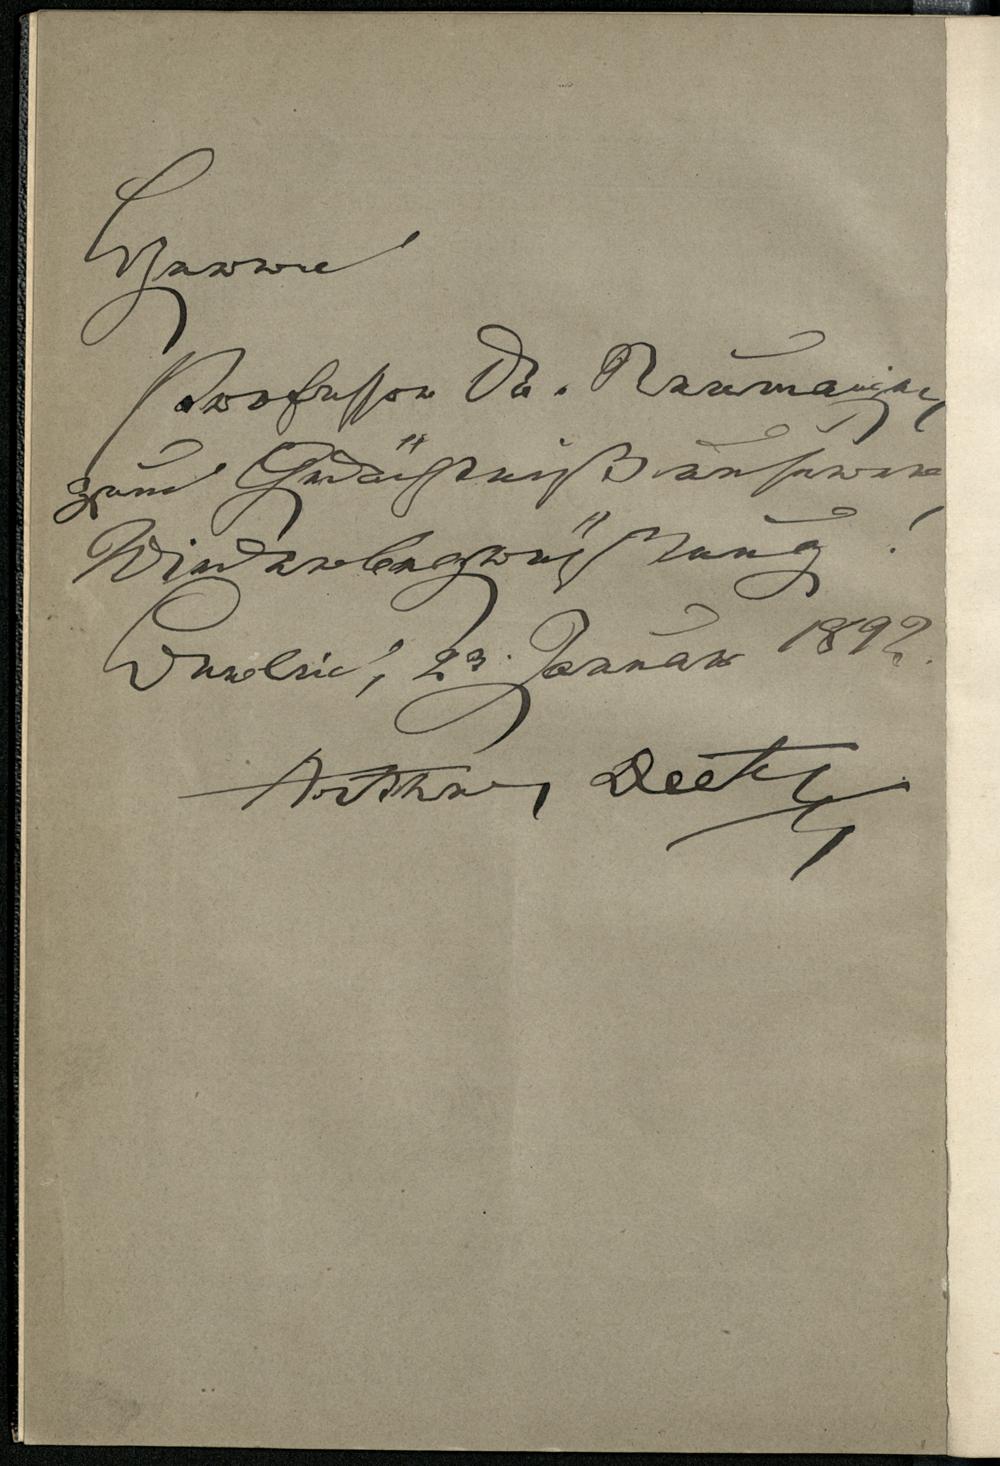 Herrn
Professor Dr. Naumann
zum Gedächtniß unserer
Wiederbegrüßung!
Berlin, 23. Januar 1892.
Arthur Deetz